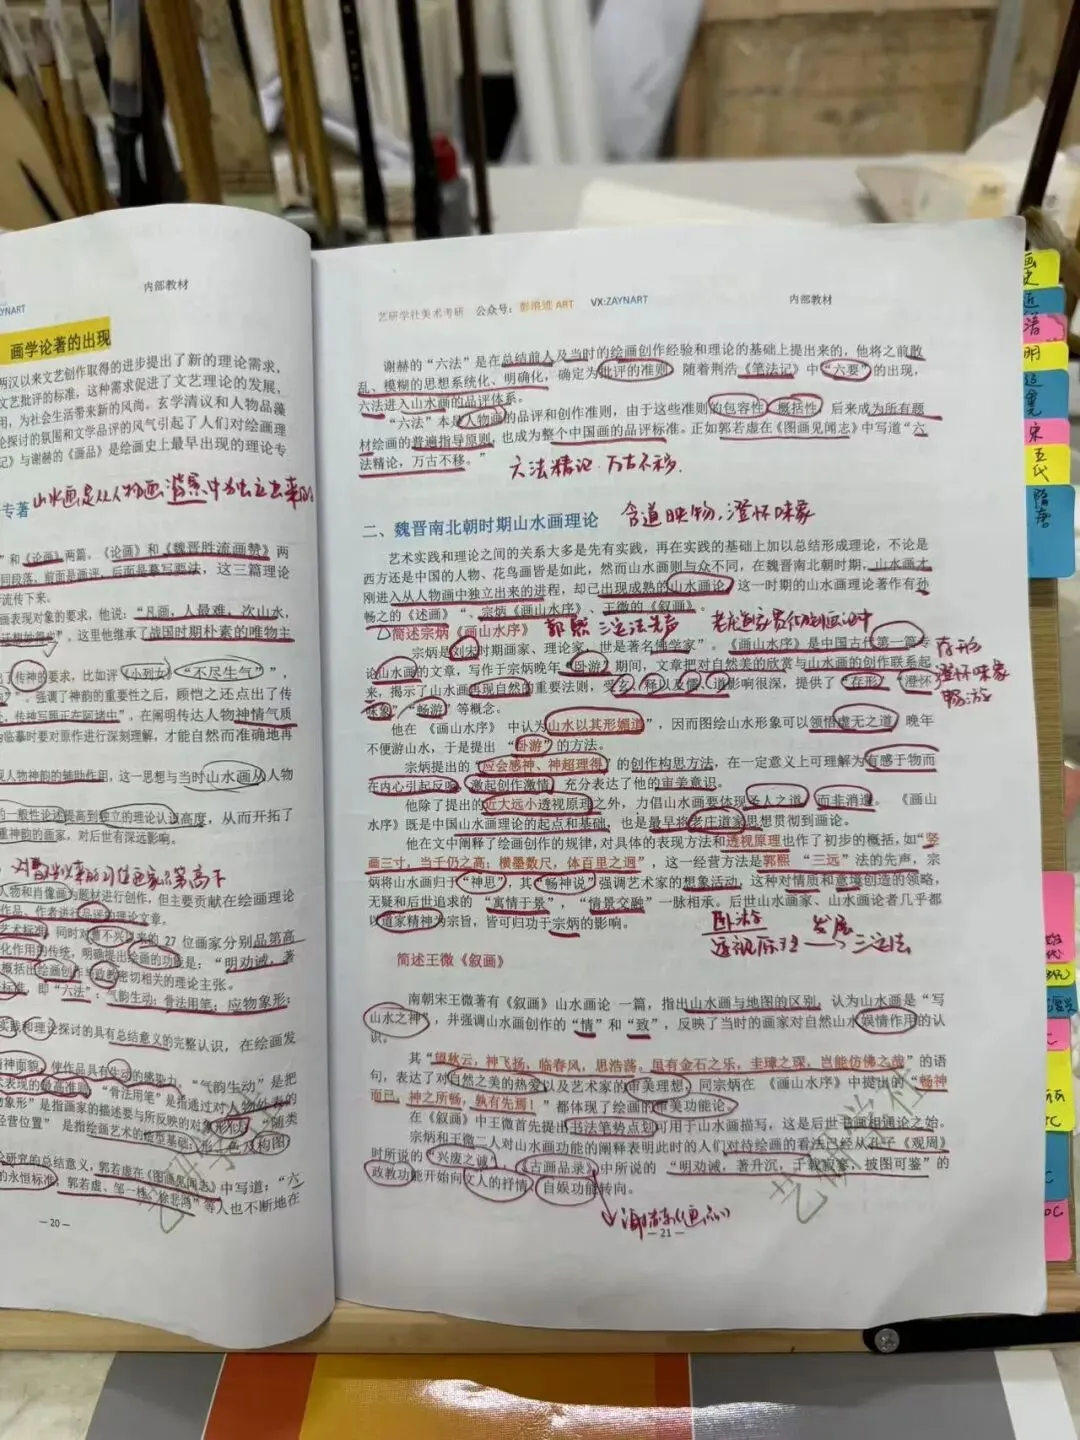 内部教材
ZAYNART
画学论著的出现
两汉以来文艺创作取得的进步提出了新的理论需求,
文艺批评的标准，这种需求促进了文艺理论的发展，
用，为社会生活带来新的风尚。玄学清议和人物品藻
论探讨的氛围和文学品评的风气引起了人们对绘画理
记》与谢赫的《画品》是绘画史上最早出现的理论专
专著 山水画是从人物画背景中独立出来的
”和《论画》两篇，《论画》和《魏晋胜流画赞》两
同段落，前面是画评，后面是摹写要法，这三篇理论
流传下来。
画表现对象的要求，他说：“凡画，人最难，次山水，
”，这里他继承了战国时期朴素的唯物主
了传神的要求，比如评《小列女》“不尽生气”，
”。强调了神韵的重要性之后，顾恺之还点出了传
，传神写照正在阿堵中”，在阐明传达人物神情气质
临摹时要对原作进行深刻理解，才能自然而准确地再
现人物神韵的辅助作用，这一思想与当时山水画从人物
的一般性论述提高到独立的理论认识高度，从而开拓了
重神韵的画家，对后世有深远影响。
人物和肖像画为题材进行创作，但主要贡献在绘画理论
作品、作者进行品评的理论文章。
艺术标准，同时对曹不兴以来的 27 位画家分别品第高
化作用的传统，明确提出绘画的功能是：“明劝诫，著
概括出绘画创作与政教密切相关的理论主张。
标准，即“六法”：气韵生动；骨法用笔；应物象形；
实践和理论探讨的具有总结意义的完整认识，在绘画发
精神面貌，使作品具有生动的感染力。“气韵生动”是把
术表现的最高准则 “骨法用笔”是指通过对人物外表的
物象形”是指画家的描述要与所反映的对象形似，“随类
经营位置”是指绘画艺术的造型基础（形、色及构图）
论研究的总结意义，郭若虚在《图画见闻志》中写道：“六
的永恒标准，郭若虚、邹一桂、徐悲鸿”等人也不断地在
— 20 —
艺研学社美术考研 公众号：彭溶进 ART VX:ZAYNART 内部教材
谢赫的“六法”是在总结前人及当时的绘画创作经验和理论的基础上提出来的，他将之前散
乱、模糊的思想系统化、明确化，确定为批评的准则 随着荆浩《笔法记》中“六要”的出现，
六法进入山水画的品评体系。
“六法”本是人物画的品评和创作准则，由于这些准则的包容性、概括性，后来成为所有题
材绘画的普遍指导原则，也成为整个中国画的品评标准。正如郭若虚在《图画见闻志》中写道“六
法精论，万古不移。”
六法精论 万古不移.
二、魏晋南北朝时期山水画理论
含道映物，澄怀味象
艺术实践和理论之间的关系大多是先有实践，再在实践的基础上加以总结形成理论，不论是
西方还是中国的人物、花鸟画皆是如此，然而山水画则与众不同，在魏晋南北朝时期，山水画才
刚进入从人物画中独立出来的进程，却已出现成熟的山水画论，这一时期的山水画理论著作有孙
畅之的《述画》、宗炳《画山水序》、王微的《叙画》。
简述宗炳《画山水序》
郭熙 三远法先声
宗炳是刘宋时期画家、理论家，世是著名佛学家”。《画山水序》是中国古代第一篇专
论山水画的文章，写作于宗炳晚年“卧游”期间，文章把对自然美的欣赏与山水画的创作联系起
来，揭示了山水画再现自然的重要法则，受玄、释以及儒、道影响很深，提供了“存形”“澄怀
味象”“畅游”等概念。
存形
澄怀味象
畅游
他在《画山水序》中认为“山水以其形媚道”，因而图绘山水形象可以领悟虚无之道 晚年
不便游山水，于是提出“卧游”的方法。
宗炳提出的“应会感神、神超理得”的创作构思方法，在一定意义上可理解为有感于物而
在内心引起反响，激起创作激情 充分表达了他的审美意识。
他除了提出的近大远小透视原理之外，力倡山水画要体现圣人之道，而非消遣。《画山
水序》既是中国山水画理论的起点和基础，也是最早将老庄道家思想贯彻到画论。
他在文中阐释了绘画创作的规律，对具体的表现方法和透视原理也作了初步的概括，如“竖
画三寸，当千仞之高；横墨数尺，体百里之迥”，这一经营方法是郭熙“三远”法的先声，宗
炳将山水画归于“神思”，其“畅神说”强调艺术家的想象活动，这种对情质和意境创造的领略，
无疑和后世追求的“寓情于景”，“情景交融”一脉相承。后世山水画家、山水画论者几乎都
以道家精神为宗旨，皆可归功于宗炳的影响。
卧游 发展
透视原理 三远法
简述王微《叙画》
南朝宋王微著有《叙画》山水画论一篇，指出山水画与地图的区别，认为山水画是“写
山水之神”，并强调山水画创作的“情”和“致”，反映了当时的画家对自然山水娱情作用的认
识。
其“望秋云，神飞扬，临春风，思浩荡。虽有金石之乐，圭璋之琛，岂能仿佛之哉”的语
句，表达了对自然之美的热爱以及艺术家的审美理想，同宗炳在《画山水序》中提出的“畅神
而已，神之所畅，孰有先焉！”都体现了绘画的审美功能论。
在《叙画》中王微首先提出书法笔势点划可用于山水画描写，这是后世书画相通论之始。
宗炳和王微二人对山水画功能的阐释表明此时的人们对待绘画的看法已经从孔子《观周》
时所说的“兴废之诫”，《古画品录》中所说的“明劝诫，著升沉，千载寂寥，披图可鉴”的
政教功能开始向文人的抒情、自娱功能转向。
— 21 —
画史
明
宋
五代
隋唐